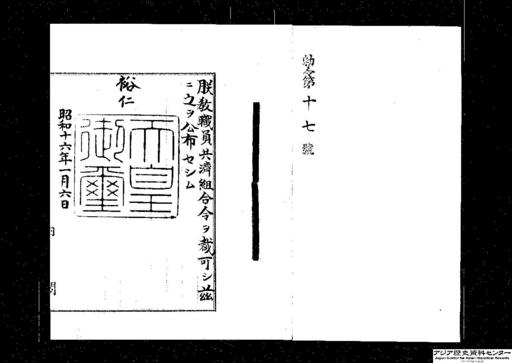 勅令第十七號
朕教職員共濟組合令ヲ裁可シ茲
ニ之ヲ公布セシム
裕仁
天皇御璽
昭和十六年一月六日
内閣
アジア歴史資料センター
Japan Center for Asian Historical Records